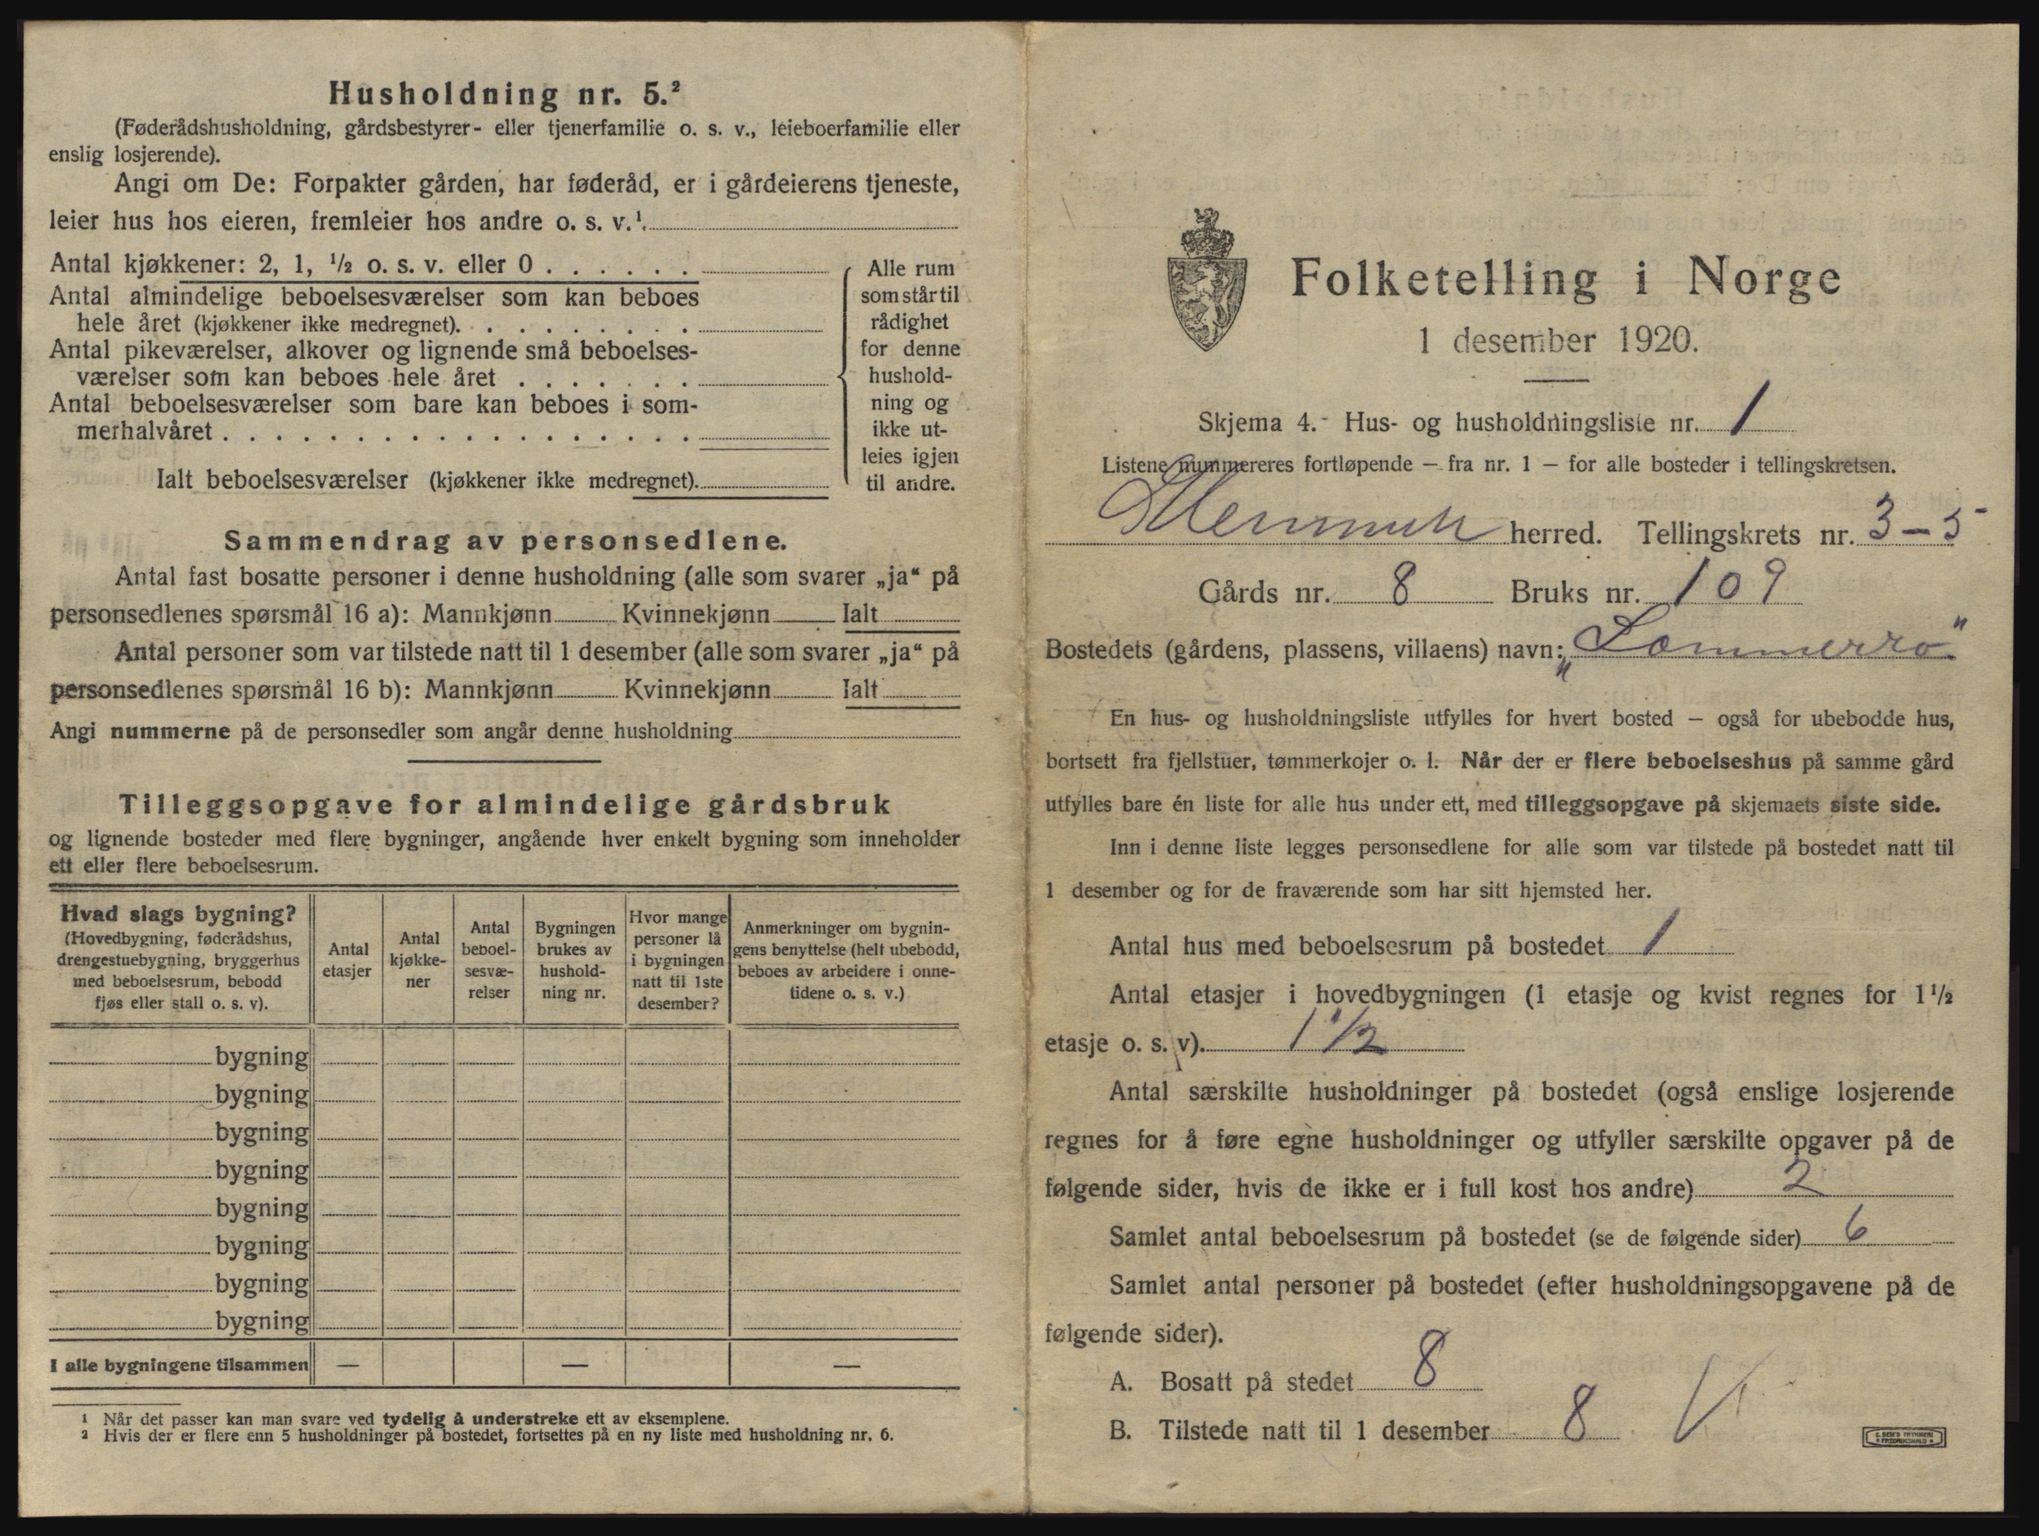 Husholdning nr. 5.²
(Føderådshusholdning, gårdsbestyrer- eller tjenerfamilie o. s. v., leieboerfamilie eller
enslig losjerende).
Angi om De: Forpakter gården, har føderåd, er i gårdeierens tjeneste,
leier hus hos eieren, fremleier hos andre o. s. v.¹.
Antal kjøkkener: 2, 1, ½ o. s. v. eller 0 . . . . . .
Antal almindelige beboelsesværelser som kan beboes
hele året (kjøkkener ikke medregnet). . . . . . . . .
Antal pikeværelser, alkover og lignende små beboelses-
værelser som kan beboes hele året . . . . . . .
Antal beboelsesværelser som bare kan beboes i som-
merhalvåret . . . . . . . . . . . . . . . . . .
Ialt beboelsesværelser (kjøkkener ikke medregnet).
Alle rum
som står til
rådighet
for denne
hushold-
ning og
ikke ut-
leies igjen
til andre.
Sammendrag av personsedlene.
Antal fast bosatte personer i denne husholdning (alle som svarer „ja“ på
personsedlenes spørsmål 16 a): Mannkjønn Kvinnekjønn Ialt
Antal personer som var tilstede natt til 1 desember (alle som svarer „ja“ på
personsedlenes spørsmål 16 b): Mannkjønn Kvinnekjønn Ialt
Angi nummerne på de personsedler som angår denne husholdning
Tilleggsopgave for almindelige gårdsbruk
og lignende bosteder med flere bygninger, angående hver enkelt bygning som inneholder
ett eller flere beboelsesrum.
Hvad slags bygning?
(Hovedbygning, føderådshus,
drengestuebygning, bryggerhus
med beboelsesrum, bebodd
fjøs eller stall o. s. v).
Antal
etasjer
Antal
kjøkke-
ner
Antal
beboel-
sesvæ-
relser
Bygningen
brukes av
hushold-
ning nr.
Hvor mange
personer lå
i bygningen
natt til 1ste
desember?
Anmerkninger om bygnin-
gens benyttelse (helt ubebodd,
beboes av arbeidere i onne-
tidene o. s. v.)
bygning
bygning
bygning
bygning
bygning
bygning
bygning
bygning
I alle bygningene tilsammen — — —
¹ Når det passer kan man svare ved tydelig å understreke ett av eksemplene.
² Hvis der er flere enn 5 husholdninger på bostedet, fortsettes på en ny liste med husholdning nr. 6.
Folketelling i Norge
1 desember 1920.
Skjema 4. Hus- og husholdningsliste nr. 1
Listene nummereres fortløpende – fra nr. 1 – for alle bosteder i tellingskretsen.
herred. Tellingskrets nr. 3 – 5
Gårds nr. 8 Bruks nr. 109
Bostedets (gårdens, plassens, villaens) navn: „Sommerro"
En hus- og husholdningsliste utfylles for hvert bosted – også for ubebodde hus,
bortsett fra fjellstuer, tømmerkojer o. l. Når der er flere beboelseshus på samme gård
utfylles bare én liste for alle hus under ett, med tilleggsopgave på skjemaets siste side.
Inn i denne liste legges personsedlene for alle som var tilstede på bostedet natt til
1 desember og for de fraværende som har sitt hjemsted her.
Antal hus med beboelsesrum på bostedet 1
Antal etasjer i hovedbygningen (1 etasje og kvist regnes for 1½
etasje o. s. v). 1 1/2
Antal særskilte husholdninger på bostedet (også enslige losjerende
regnes for å føre egne husholdninger og utfyller særskilte opgaver på de
følgende sider, hvis de ikke er i full kost hos andre) 2
Samlet antal beboelsesrum på bostedet (se de følgende sider) 6
Samlet antal personer på bostedet (efter husholdningsopgavene på de
følgende sider).
A. Bosatt på stedet 8
B. Tilstede natt til 1 desember 8